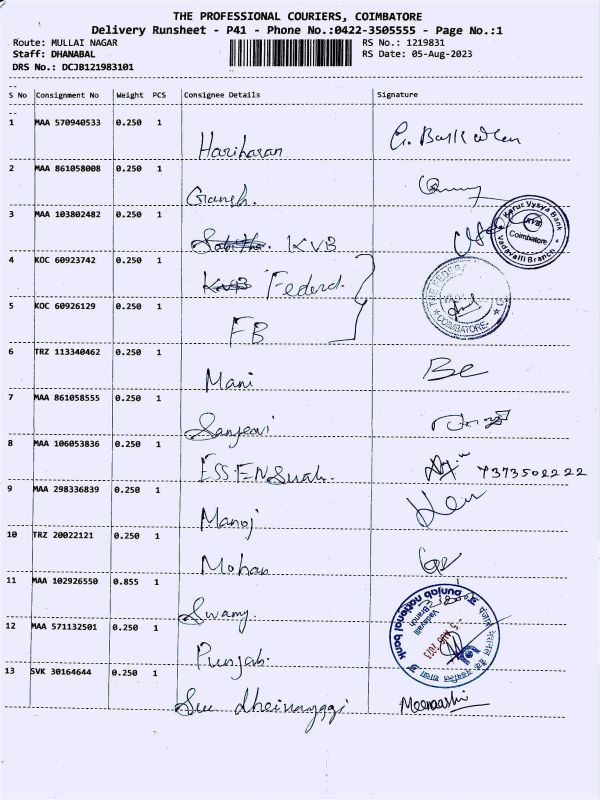 THE PROFESSIONAL COURIERS, COIMBATORE
Delivery Runsheet - P41 - Phone No.:0422-3505555 - Page No.:1
Route: MULLAI NAGAR RS No.: 1219831
Staff: DHANABAL RS Date: 05-Aug-2023
DRS No.: DCJB121983101
S No Consignment No Weight PCS Consignee Details Signature
1 MAA 570940533 0.250 1
Hariharan
2 MAA 861058008 0.250 1
Ganesh.
3 MAA 103802482 0.250 1
KVB
Karur Vysya Bank
KVB
Coimbatore
Vadavalli Branch
4 KOC 60923742 0.250 1
KVB Federal.
THE FEDERAL
COIMBATORE
5 KOC 60926129 0.250 1
FB
6 TRZ 113340462 0.250 1
Mani
7 MAA 861058555 0.250 1
Sanjeevi
8 MAA 106053836 0.250 1
ESS.EN 7373502222
9 MAA 298336839 0.250 1
Manoj
10 TRZ 20022121 0.250 1
Mohan
11 MAA 102926550 0.855 1
Swamy.
punjab national bank
Vadavalli
Branch
12 MAA 571132501 0.250 1
Punjab.
13 SVK 30164644 0.250 1
Meenaashi